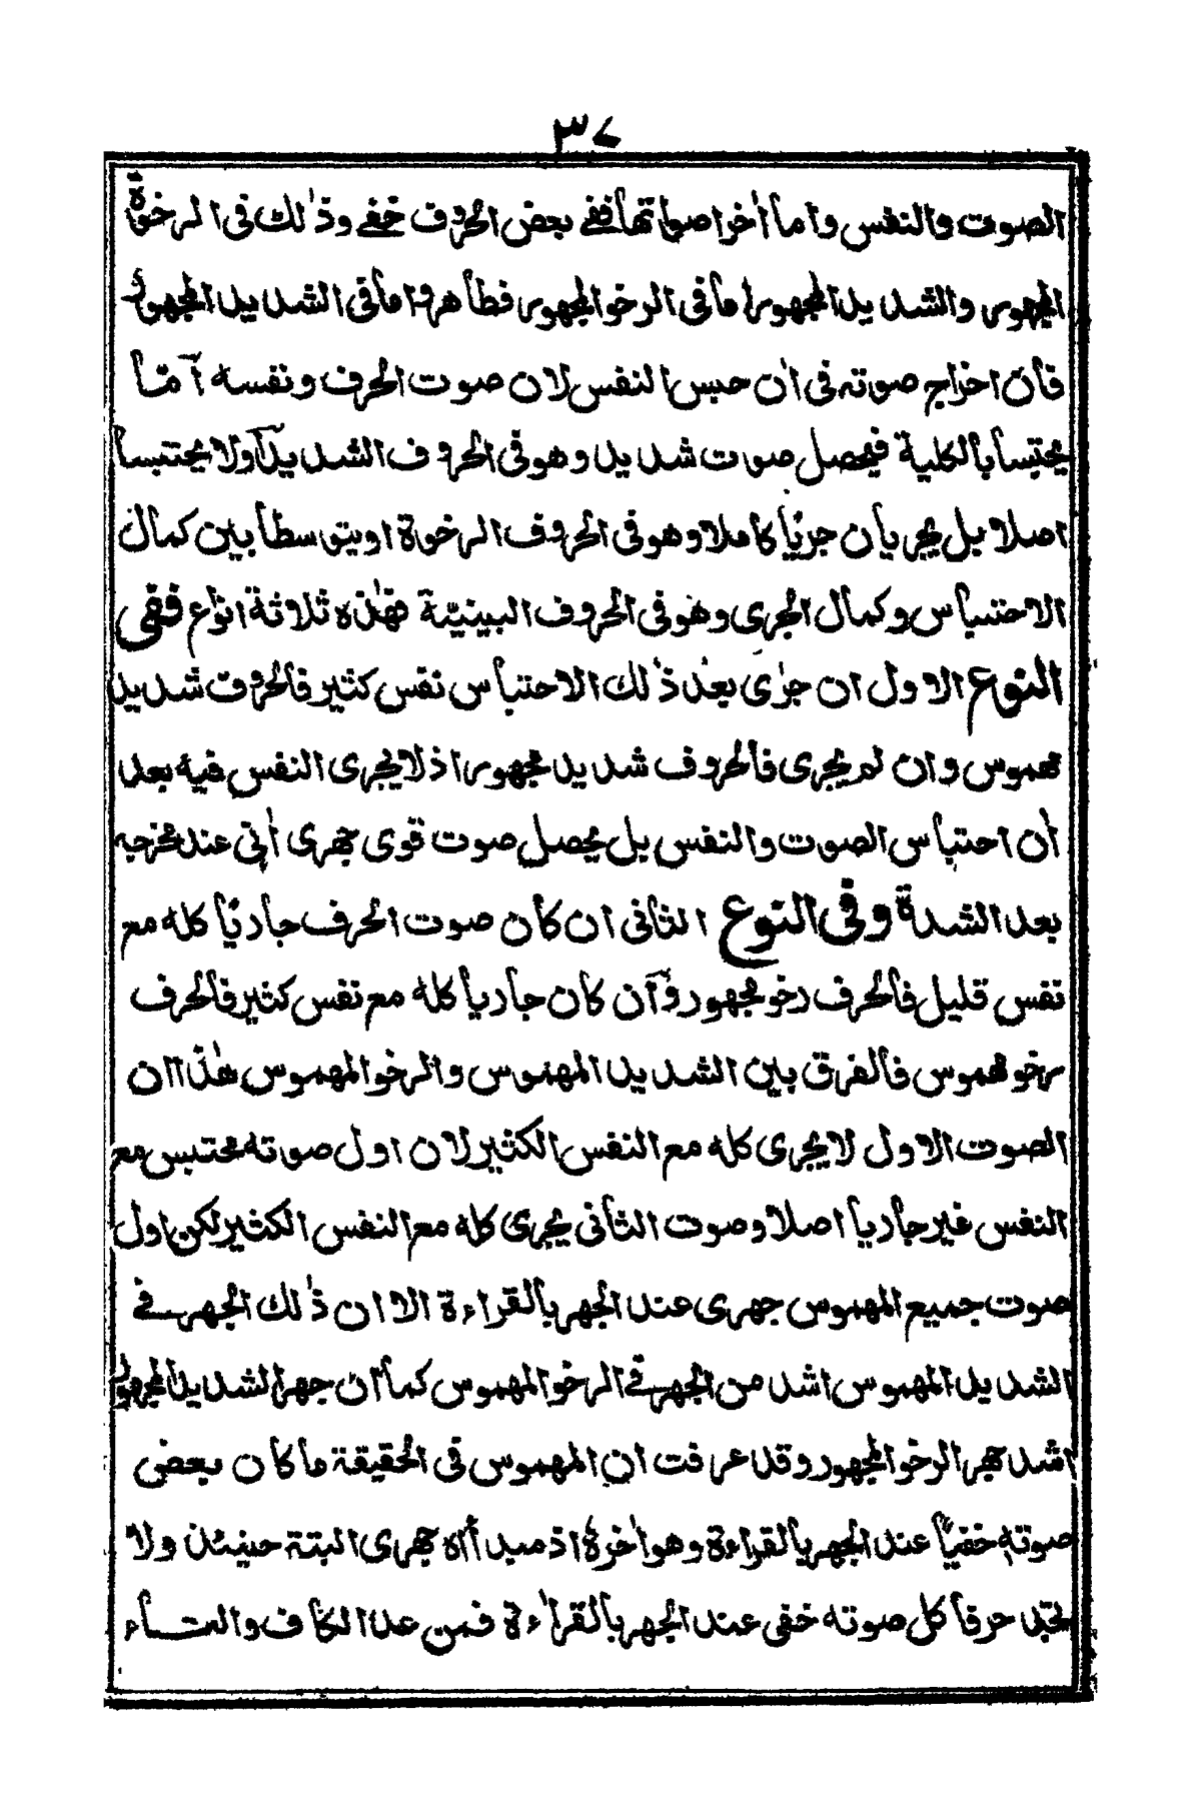 ٣٧
الصوت والنفس واما اٰخراصواتها ففے بعض الحروف خفے وذٰلك فى الرخوة
المجهور والشديد المجهور اما فى الرخو المجهور فظاهر واما فى الشديد المجهور
فان اخراج صوته فى اٰن حبس النفس لان صوت الحرف ونفسه اٰمّا
يحتبسا بالكلية فيحصل صوت شديد وهو فى الحروف الشديدة اولا يحتبسا
اصلا بل يجريان جريًا كاملا وهو فى الحروف الرخوة او يتوسطا بين كمال
الاحتباس وكمال الجرى وهو فى الحروف البينيّة فهٰذه ثلاثة انواع ففى
النوع الاول ان جرٰى بعد ذٰلك الاحتباس نفس كثير فالحروف شديد
مهموس وان لم يجرى فالحروف شديد مجهور اذ لا يجرى النفس فيه بعد
اٰن احتباس الصوت والنفس بل يحصل صوت قوى جهرى اٰتى عند مخرجه
بعد الشدة وفى النوع الثانى ان كان صوت الحرف جاريًا كله مع
نفس قليل فالحرف رخو مجهور وان كان جاريا كله مع نفس كثير فالحرف
رخو مهموس فالفرق بين الشديد المهموس والرخو المهموس هٰذا ان
الصوت الاول لا يجرى كله مع النفس الكثير لان اول صوته محتبس مع
النفس غير جاريا اصلا وصوت الثانى يجرى كله مع النفس الكثير لكن اول
صوت جميع المهموس جهرى عند الجهر بالقراءة الا ان ذٰلك الجهر فے
الشديد المهموس اشد من الجهر فے الرخو المهموس كما ان جهر الشديد المجهور
اشد جهر الرخو المجهور وقد عرفت ان المهموس فى الحقيقة ما كان بعض
صوته خفيًا عند الجهر بالقراءة وهو اٰخره اذ مبدأه جهرى البتة حينئذ ولا
تجد حرفا كل صوته خفى عند الجهر بالقراٰءة فمن عدا الكاف والتاء